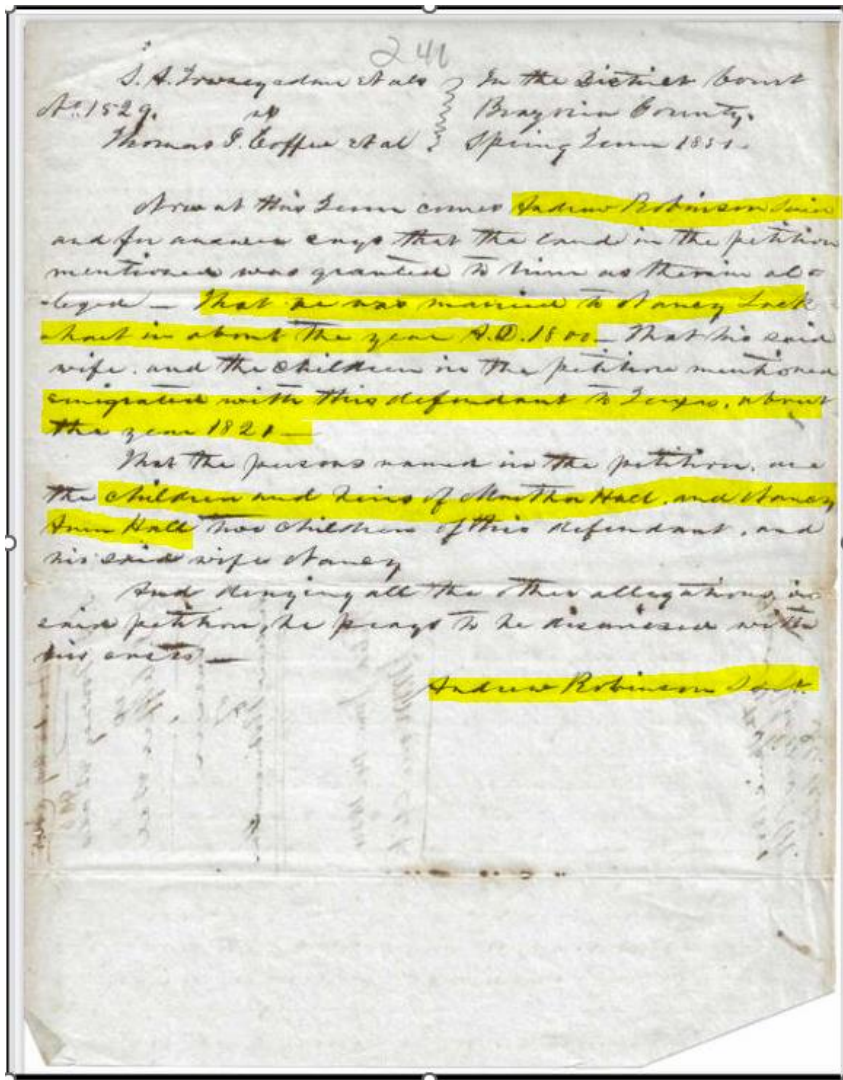 246
S. A. Towsey adm et als } In the District Court
No. 1529. vs } Brazoria County.
Thomas J. Coffee et al } Spring Term 1851.
Now at this Term comes Andrew Robinson Senr
and for answer says that the land in the petition
mentioned was granted to him as therein al-
-leged — That he was married to Nancy Lock
-hart in about the year A.D. 1800 — That his said
wife, and the children in the petition mentioned
emigrated with this defendant to Texas, about
the year 1821 —
That the persons named in the petition, are
the children and heirs of Martha Hall, and Nancy
Ann Hall two children of this defendant, and
his said wife Nancy
And denying all the other allegations in
said petition, he prays to be dismissed with
his costs —
Andrew Robinson Senr.